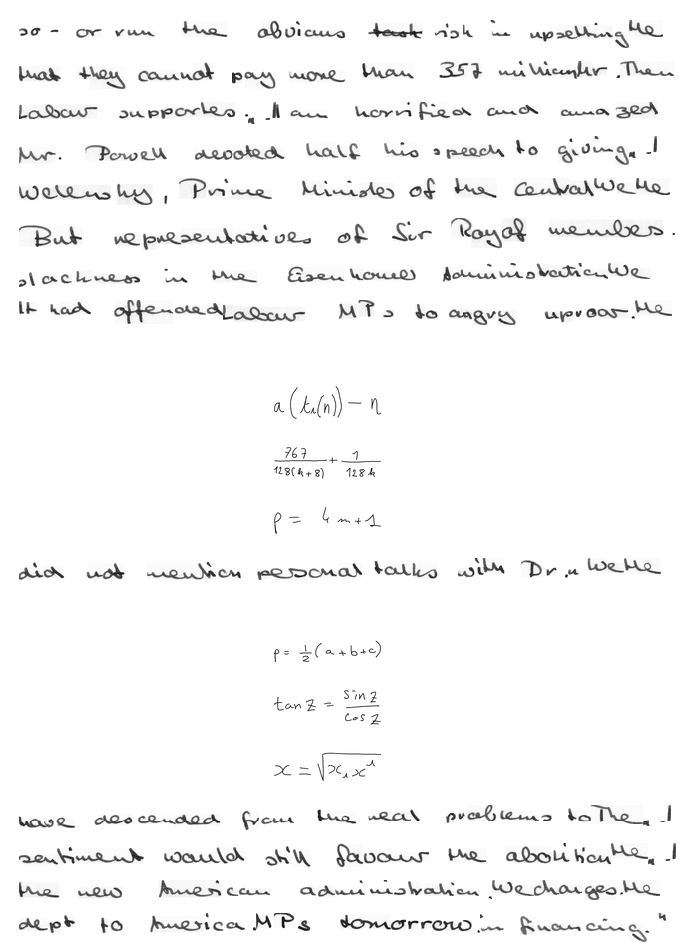 so - or run the obvious task risk in upsetting We
that they cannot pay more than 357 million Mr. Then
Labour supporters. " I am horrified and amazed
Mr. Powell devoted half his speech to giving " I
Welensky, Prime Minister of the Central We
But representatives of Sir Roy of members.
slackness in the Eisenhower Administration We
It had offended Labour MPs to angry uproar. He
a(t₁(n)) - n
767/128(k+8) + 1/128k
p = 4m+1
did not mention personal talks with Dr. " We
p = 1/2 (a+b+c)
tan z = sin z / cos z
x = √x₁x¹
have descended from the real problems to The " I
sentiment would still favour the abolition " I
the new American administration. We charges. He
dept to America. MPs tomorrow. in financing. "